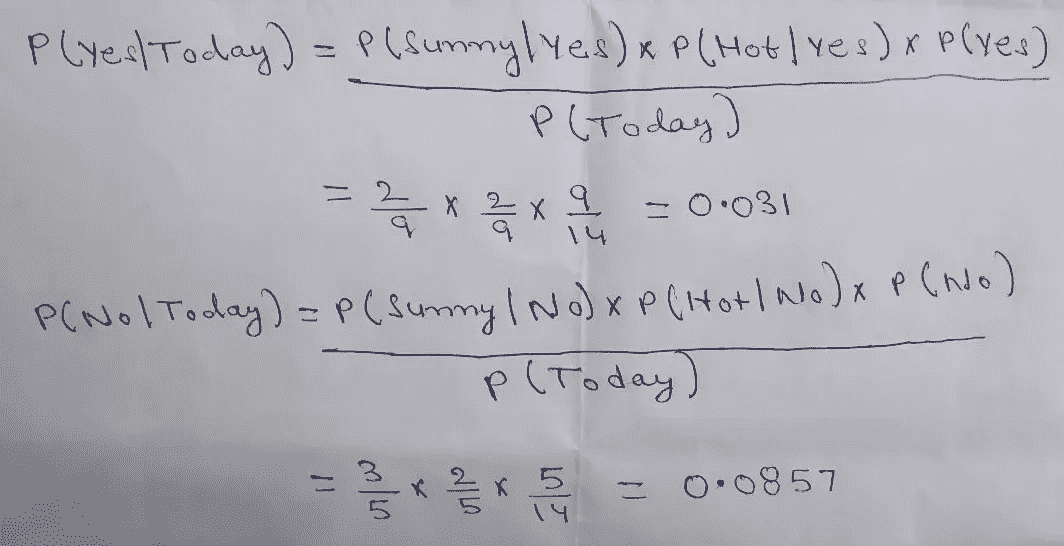 P(Yes|Today) = P(Sunny|Yes) x P(Hot|Yes) x P(Yes)
P(Today)
= 2/9 x 2/9 x 9/14 = 0.031
P(No|Today) = P(Sunny|No) x P(Hot|No) x P(No)
P(Today)
= 3/5 x 2/5 x 5/14 = 0.0857